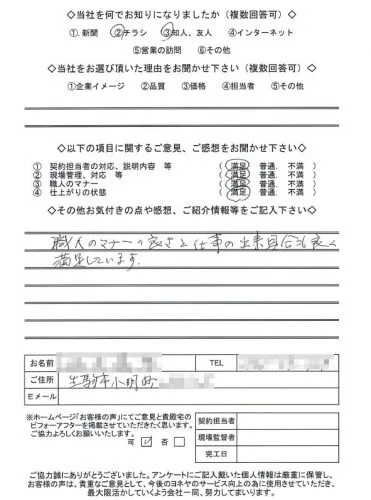 ◇当社を何でお知りになりましたか（複数回答可）◇
①.新聞 ②チラシ ③知人、友人 ④インターネット
⑤営業の訪問 ⑥その他
◇当社をお選び頂いた理由をお聞かせ下さい（複数回答可）◇
①企業イメージ ②品質 ③価格 ④担当者 ⑤その他
◇以下の項目に関するご意見、ご感想をお聞かせ下さい◇
① 契約担当者の対応、説明内容 等 （ 満足 普通. 不満 ）
② 現場管理、対応 等 （ 満足. 普通. 不満 ）
③ 職人のマナー （ 満足. 普通. 不満 ）
④ 仕上がりの状態 （ 満足. 普通. 不満 ）
◇その他お気付きの点や感想、ご紹介情報等をご記入下さい◇
職人のマナーの良さと仕事の出来具合も良く
満足しています.
お名前 TEL
ご住所 生駒市小明町
Eメール
※ホームページ「お客様の声」にてご意見と貴殿宅の
ビフォーアフターを掲載させていただきたく思います。
ご協力よろしくお願いいたします。
可 否
契約担当者
現場監督者
完工日
ご協力誠にありがとうございました。アンケートにご記入戴いた個人情報は厳重に保管し、
お客様の声は、貴重なご意見として、今後のヨネヤのサービス向上の為に使用させていただき、
最大限活かしていくよう会社一同、努力してまいります。